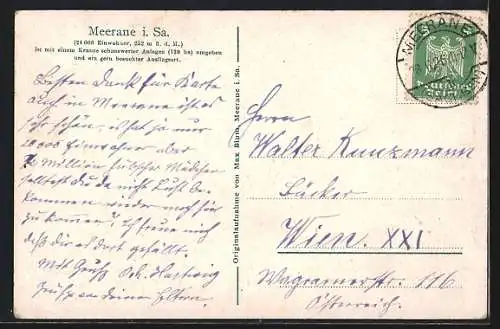 Meerane i. Sa.
(24 000 Einwohner, 252 m ü. d. M.)
ist mit einem Kranze sehenswerter Anlagen (120 ha) umgeben
und ein gern besuchter Ausflugsort.
Besten Dank für Karte
auch in Meerane ist es
sehr schön, es hat ja nur
20000 Einwohner aber
½ Million hübscher Mädchen
solltest Du da nicht Lust be
kommen wieder mal hier
zu kommen? Ich freue mich
daß dir es dort gefällt.
Mit Gruß Osk. Hartwig
Gruß an deine Eltern.
Originalaufnahme von Max Bloib, Meerane i. Sa.
MEERANE
Deutsches
Reich
Herrn
Walter Kunzmann
Bäcker
Wien XXI
Wagramerstr. 116
Österreich.